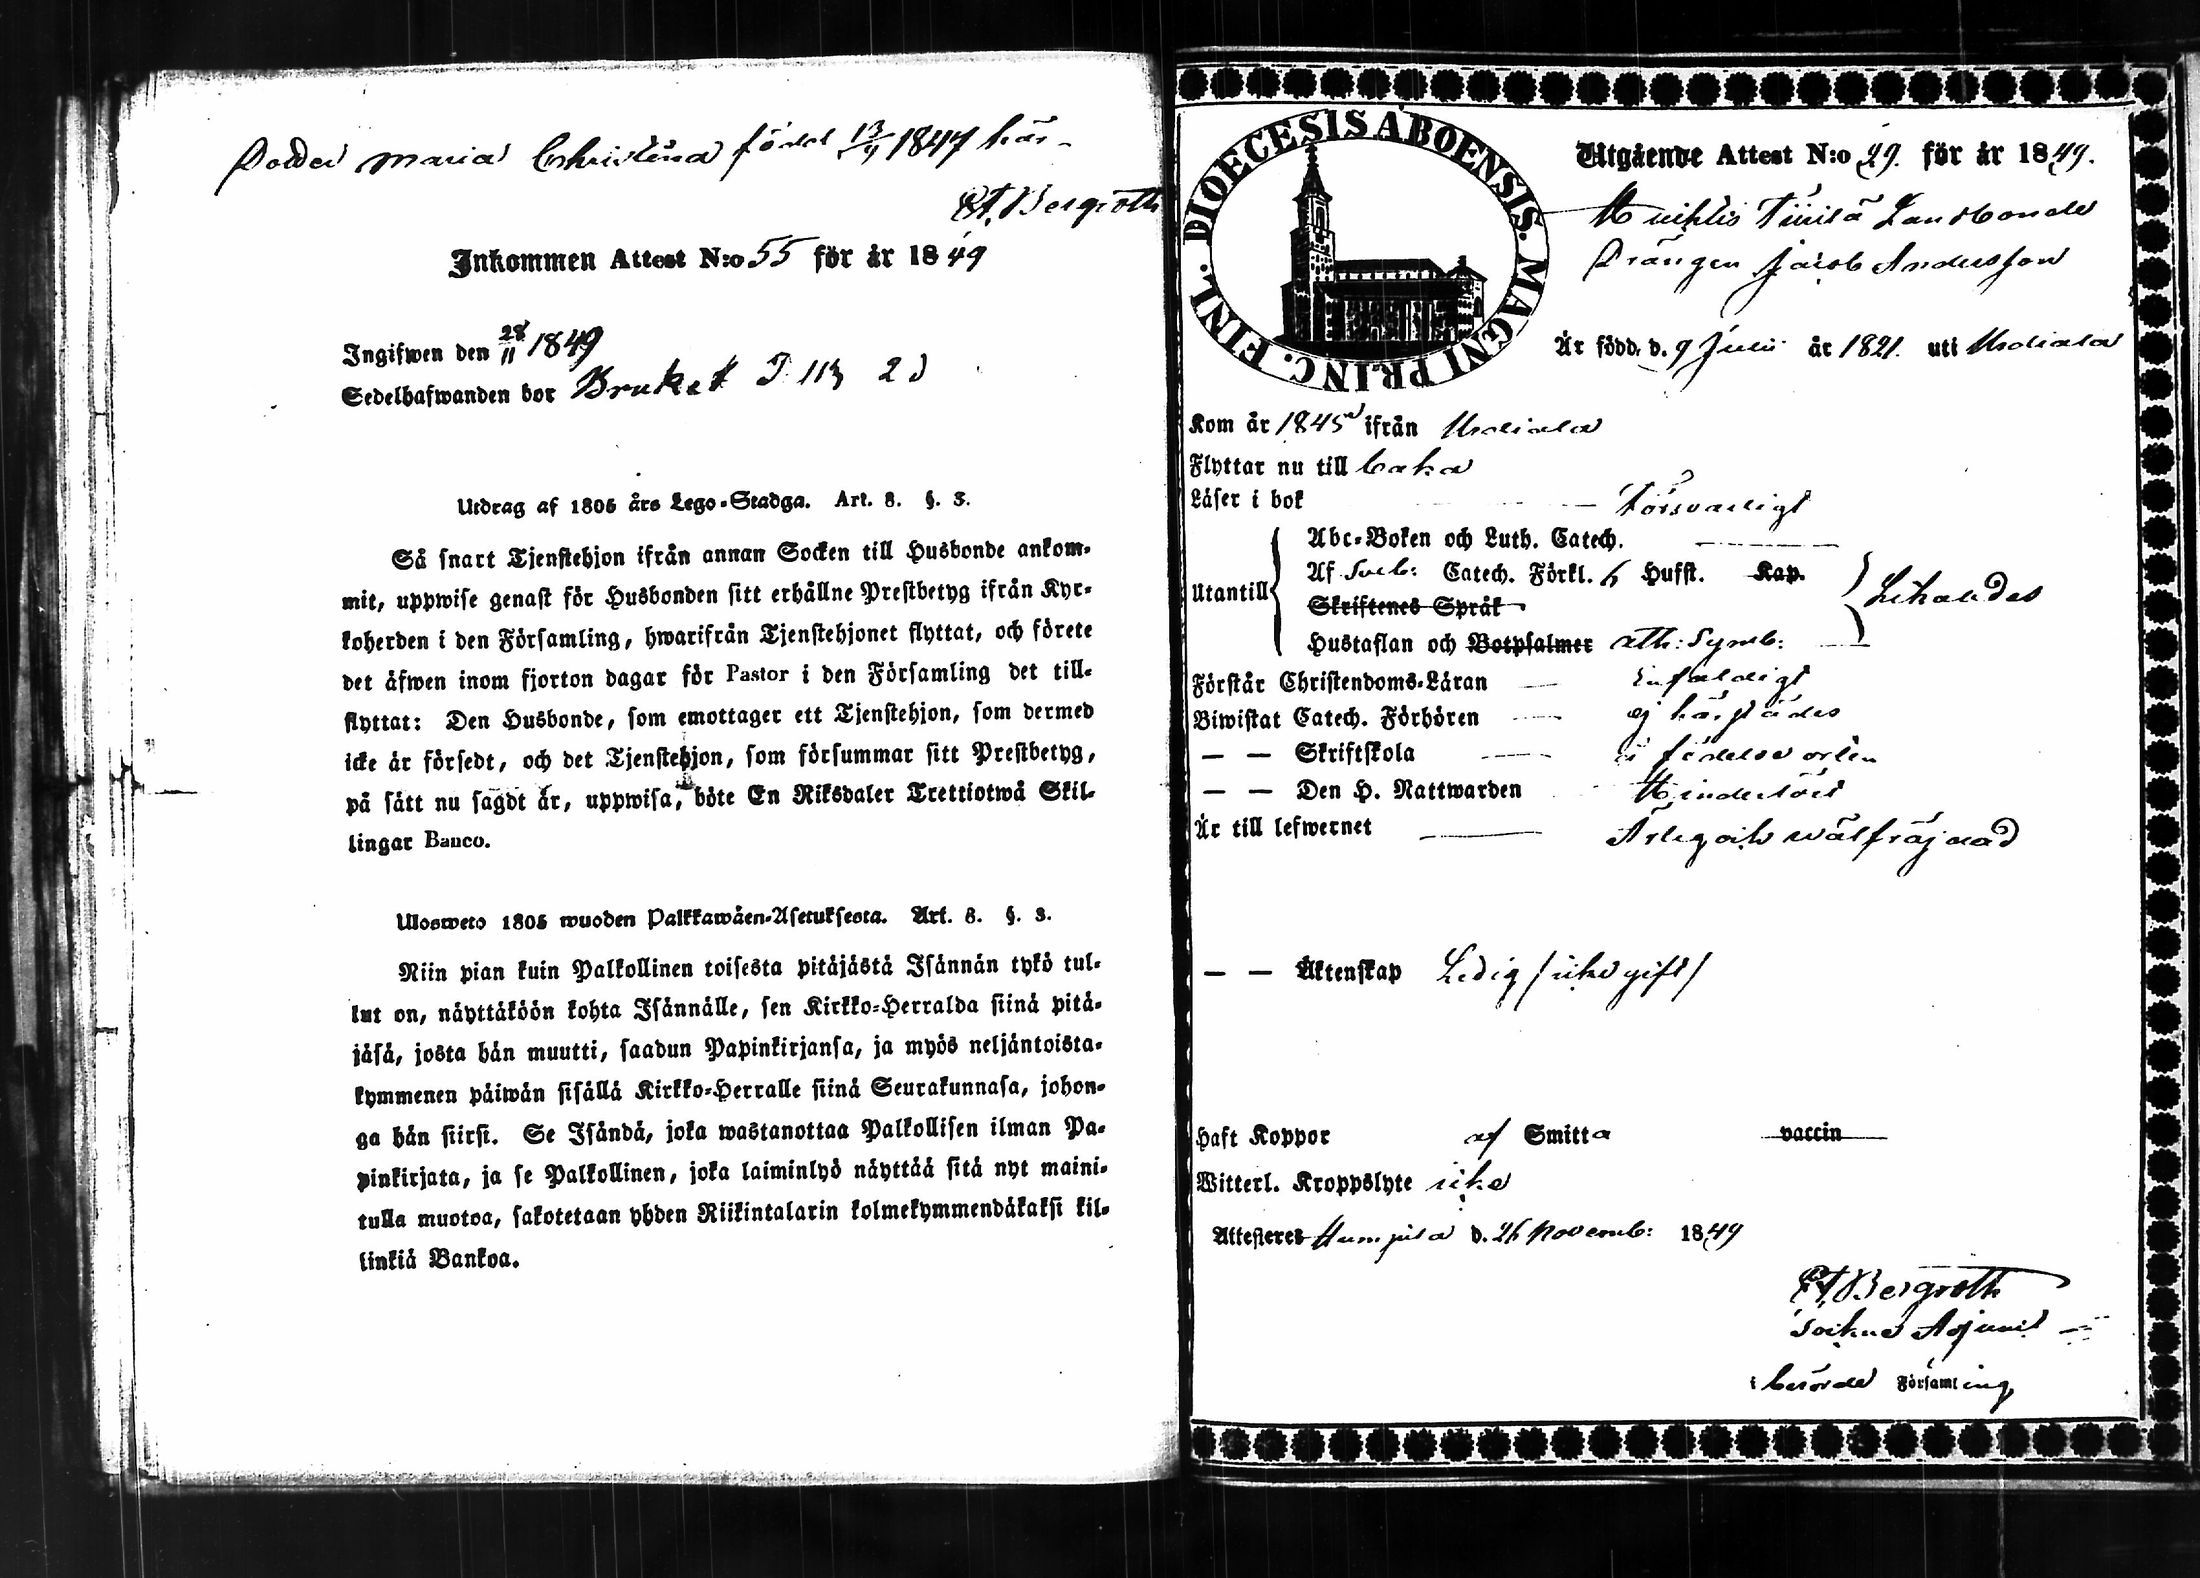 Dotter Maria Christina född 13/4 1847 här
Bergroth
Inkommen Attest N:o 55 för år 1849
Ingifwen den 28/11 1849
Sedelhafwanden bor Bruket
Utdrag af 1805 års Lego-Stadga. Art. 8. §. 3.
Så snart Tjenstehjon ifrån annan Socken till Husbonde ankom-
mit, uppwise genast för Husbonden sitt erhållne Prestbetyg ifrån Kyr-
koherden i den Församling, hwarifrån Tjenstehjonet flyttat, och förete
det äfwen inom fjorton dagar för Pastor i den Församling det till-
flyttat: Den Husbonde, som emottager ett Tjenstehjon, som dermed
icke är försedt, och det Tjenstehjon, som försummar sitt Prestbetyg,
på sätt nu sagdt är, uppwisa, böte En Riksdaler Trettiotwå Skil-
lingar Banco.
Ulosweto 1805 wuoden Palkkawäen-Asetuksesta. Art. 8. §. 3.
Niin pian kuin Palkollinen toisesta pitäjästä Isännän tykö tul-
lut on, näyttäköön kohta Isännälle, sen Kirkko-Herralda siinä pitä-
jäsä, josta hän muutti, saadun Papinkirjansa, ja myös neljäntoista-
kymmenen päiwän sisällä Kirkko-Herralle siinä Seurakunnasa, johon-
ga hän siirsi. Se Isändä, joka wastanottaa Palkollisen ilman Pa-
pinkirjata, ja se Palkollinen, joka laiminlyö näyttää sitä nyt maini-
tulla muotoa, sakotetaan yhden Riikintalarin kolmekymmendäkaksi kil-
linkiä Bankoa.
DIOECESIS ABOENSIS. MAGNI PRINC. FINL.
Utgående Attest N:o 29. för år 1849.
Landbonde
Drängen Jacob Andersson
Är född d. 9 Julii år 1821. uti Urdiala
Kom år 1845 ifrån Urdiala
Flyttar nu till
Läser i bok Försvarligt
Abc-Boken och Luth. Catech.
Utantill
Af Sveb: Catech. Förkl. Hufst. Kap.
Skriftenes Språk
Likaledes
Hustaflan och Botpsalmer ath: Symb:
Förstår Christendoms-Läran Enfaldigt
Biwistat Catech. Förhören ej härstädes
— — Skriftskola i födelse orten
— — Den H. Nattwarden
Är till lefwernet Ärlig och wälfräjdad
— — Äktenskap Ledig /icke gift/
Haft Koppor af Smitta vaccin
Witterl. Kroppslyte icke
Attesteres Humpila d. 26 Novemb: 1849
Bergroth
Sockne Adjunct
i berörde Församling